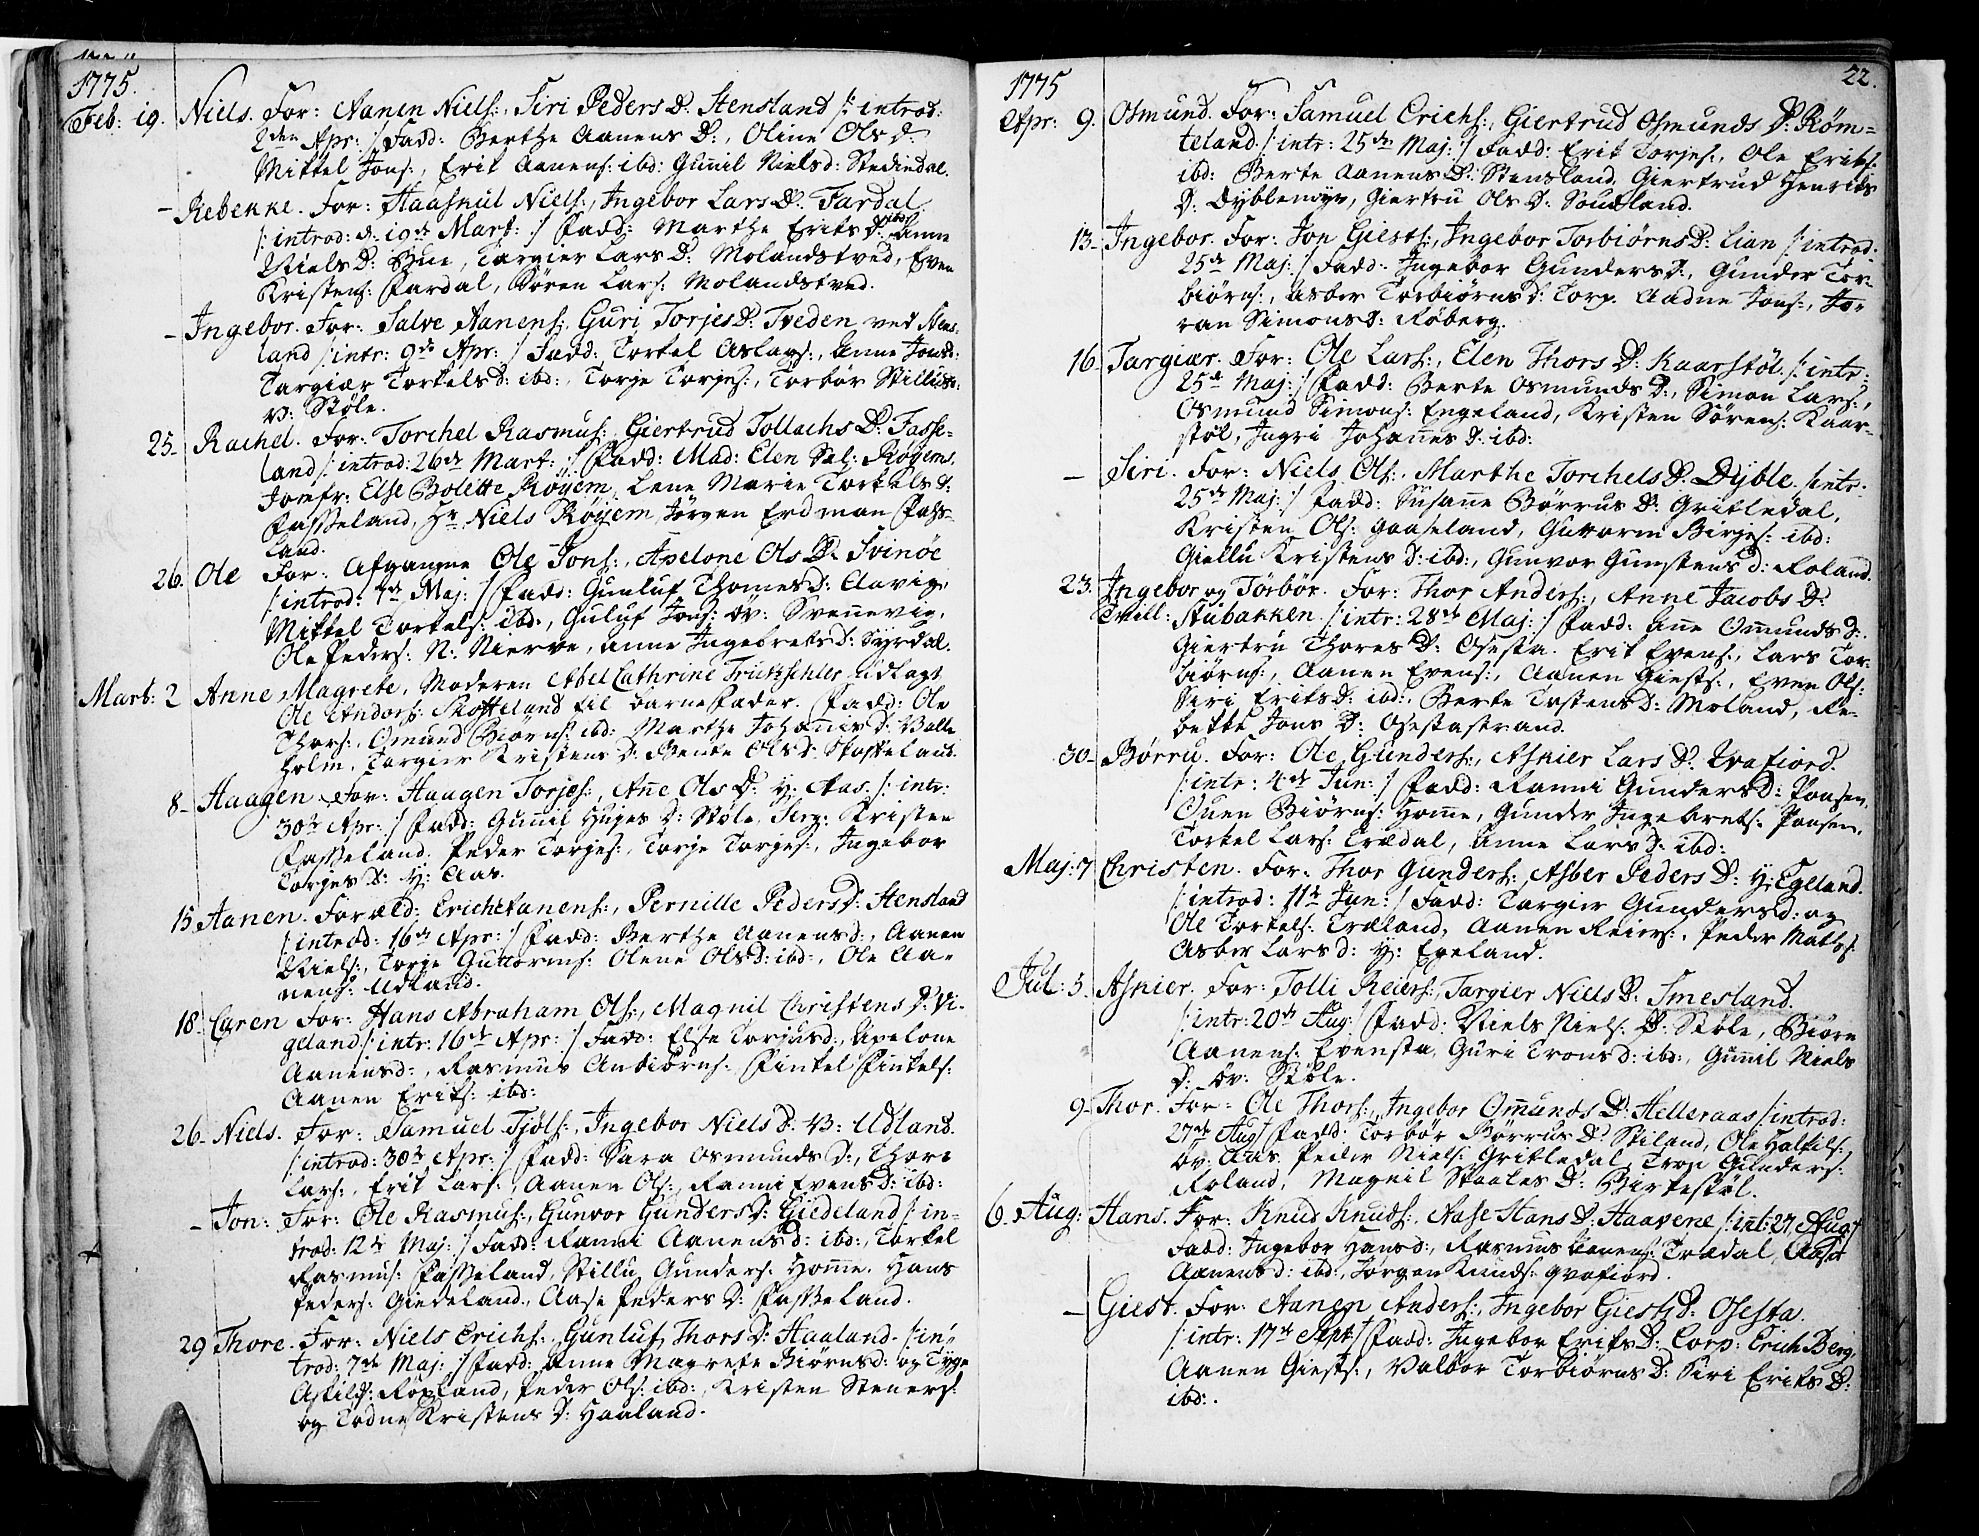 1775.
Feb: 19. Niels. For: Aanen Niels:, Siri Peders D. Stensland /: introd:
2den Apr: :/ Fadd: Berthe Aanens D:, Oline Ols d:
Mikkel Jons:, Erik Aanens: ibd: Gunil Niels d: Stedjedal.
- Rebekke. For: Haaskul Niels:, Ingebor Lars D. Fardal.
/: introd: d. 19de Mart: :/ Fadd: Marthe Eriks D: ibd: Anne
Niels D: Hue, Targier Lars D: Molandstved, Even
Kristens: Fardal, Sören Lars: Molandstved.
- Ingebor. For: Salve Aanens: Guri Torjes D: Tveden ved Stens-
land /: intr: 9de Apr: :/ Fadd: Torkel Aslags:, Anne Jonsd:
Targiær Torkels D: ibd:, Torje Torjes:, Torbör Stillus:
v: Støle.
25- Rachel. For: Torchel Rasmus: Giertrud Tollachs D: Fasse-
land /: introd: 26de Mart: :/ Fadd: Mad: Elen Sal: Røyems.
Jomfr: Else Bolette Røyem, Lene Marie Torkels d:
Fasseland, Hr Niels Røyem, Jörgen Erdman Fass-
land.
26. Ole For: Afgangne Ole Jons:, Apelone Ols D. Svinöe
/: introd: 7de Maj: :/ Fadd: Gunluf Thomes D: Aavig,
Mikkel Torkels: ibd:, Guluf Jons: öv: Svennevig,
Ole Peders: N: Nierve, Anne Ingebrets d: Syrdal.
Mart: 2 Anne Magrete, Moderen Abel Cathrine Tritzschler udlagt
Ole Andors: Skofteland til barnefader. Fadd: Ole
Thors:, Osmund Biörns: ibd: Marthe Johanis D: Valle
holm, Targier Kristens D: Bente Ols D. Skofteland.
8- Haagen. For: Haagen Torjes:, Ane Ols D. y: Aas. /: intr:
30te Apr: :/ Fadd: Gunil Hujes D: Støle, Serg: Kristen
Fasseland. Peder Torjes:, Torje Torjes:, Ingebor
Torjes D: y: Aas.
15 Aanen. Foræld: Erich Aanens:, Pernille Peders D: Stensland
/: introd: 16de Apr: :/ Fadd: Berthe Aanens d:, Aanen
Niels:, Torje Guttorms: Olene Ols D: ibd:, Ole Aa-
nens: Udland.
18- Caren For: Hans Abraham Ols:, Magnil Christens D: Vi-
geland /: intr: 16de Apr: :/ Fadd: Else Torjus d:, Apelone
Aanens d:, Rasmus Anbiörns: Finkel Finkels:
Aanen Eriks: ibd:
26- Niels. For: Samuel Tjöls:, Ingebor Niels D. V: Udland.
/: introd: 30te Apr: :/ Fadd: Sara Osmunds D:, Thore
Lars:, Erik Lars:, Aanen Ols:, Ranni Evens D: ibd:
- Jon: For: Ole Rasmus:, Gunvor Gunders D: Giedeland /: in-
trod: 12te Maj: :/ Fadd: Ranni Aanens d: ibd:, Torkel
Rasmus: Fasseland, Stillu Gunders: Home. Hans
Peders: Giedeland, Aase Peders D: Fasseland.
29 Thore. For: Niels Erichs:, Gunluf Thors D: Haaland. /: in-
trod: 7de Maj: :/ Fadd: Anne Magrete Biörns d: og Tyge
Askils: Röyland, Peder Ols: ibd:, Kristen Steners:
og Todne Kristens D: Haaland.
1775
22.
Apr: 9. Osmund. For: Samuel Erichs:, Giertrud Osmunds D: Røm-
teland. /: intr: 25de Maj: :/ Fadd: Erik Torjes:, Ole Eriks:
ibd: Berte Aanens D: Stensland, Giertrud Henriks
D: Dyblemyr, Giertru Ols D: Soudland.
13- Ingebor. For: Jon Giests:, Ingebor Torbiørns D: Lian /: introd:
25de Maj: :/ Fadd: Ingebor Gunders D:, Gunder Tor-
biörns:, Asber Torbiörns D: Torp. Aadne Jons:, Jo-
ran Simons D: Røberg.
16- Targiær. For: Ole Lars:, Elen Thors D: Kaarstöl. /: intr:
25de Maj: :/ Fadd: Berte Osmunds D:, Simon Lars:,
Osmund Simons: Engeland, Kristen Sörens: Kaar-
stöl, Ingri Johanes D: ibd:
- Siri. For: Niels Ols:, Marthe Torchels D. Dyble. /: intr:
25de Maj: :/ Fadd: Susane Börrus D: Gritledal,
Kristen Ols: Gaaseland, Guttorm Birjes: ibd:
Giellu Kristens D: ibd:, Gunvor Gunstens D: Roland.
23. Ingebor og Törbör. For: Thor Anders:, Anne Jacobs D:
Tvill: Stubakken /: intr: 28de Maj: :/ Fadd: Ane Omunds D:
Giertru Thores D: Osesta. Erik Evens:, Lars Tor-
biörns:, Aanen Evens:, Aanen Giests:, Even Ols:
Siri Eriks D: ibd:, Berte Tostens D: Moland, Re-
bekke Jons D: Osestastrand.
30- Börru. For: Ole Gunders:, Asnier Lars D: Qvafiord.
/: intr: 4de Jun: :/ Fadd: Ranni Gunders D: Poasen,
Ouen Biörns: Home, Gunder Ingebrets: Poasen,
Torkel Lars: Trædal, Anne Lars D: ibd:
Maj: 7 Christen. For: Thor Gunders:, Asber Peders D: y: Egeland.
/: introd: 11te Jun: :/ Fadd: Targier Gunders d: og
Ole Torkels: Træland, Aanen Reiers:, Peder Mathis:
Asber Lars d: y: Egeland.
Jul: 3. Asnier. For: Tolli Reiers:, Targier Niels D. Smesland.
/: intr: 20de Aug: / Fadd: Niels Niels: D: Støle, Biörn
Aanens: Evensta, Guri Trons d: ibd:, Gunil Niels
D: öv: Støle.
9- Thor. For: Ole Thors:, Ingebor Omunds D: Helleraas /: introd:
27de Aug: / Fadd: Torbör Börrus D: Stiland, Ole Halkils:
öv: Aas Peder Niels: Gritledal, Tron Gunders:
Roland, Magnil Staales D: Birkestöl.
6. Aug: Hans. For: Knud Knuds:, Aase Hans D: Haavene /: int: 27 Aug:/
Fadd: Ingebor Hans d:, Rasmus Aanens: Trædal, Aaset
Aanens d: ibd:, Jörgen Knuds: Qvafiord.
- Giest. For: Aanen Anders:, Ingebor Giests D. Osesta.
/: intr: 17de Sept: / Fadd: Ingebor Eriks D: Corp: Erich Berg,
Aanen Giests:, Valbor Torbiörns D: Siri Eriks D:
ibd:.